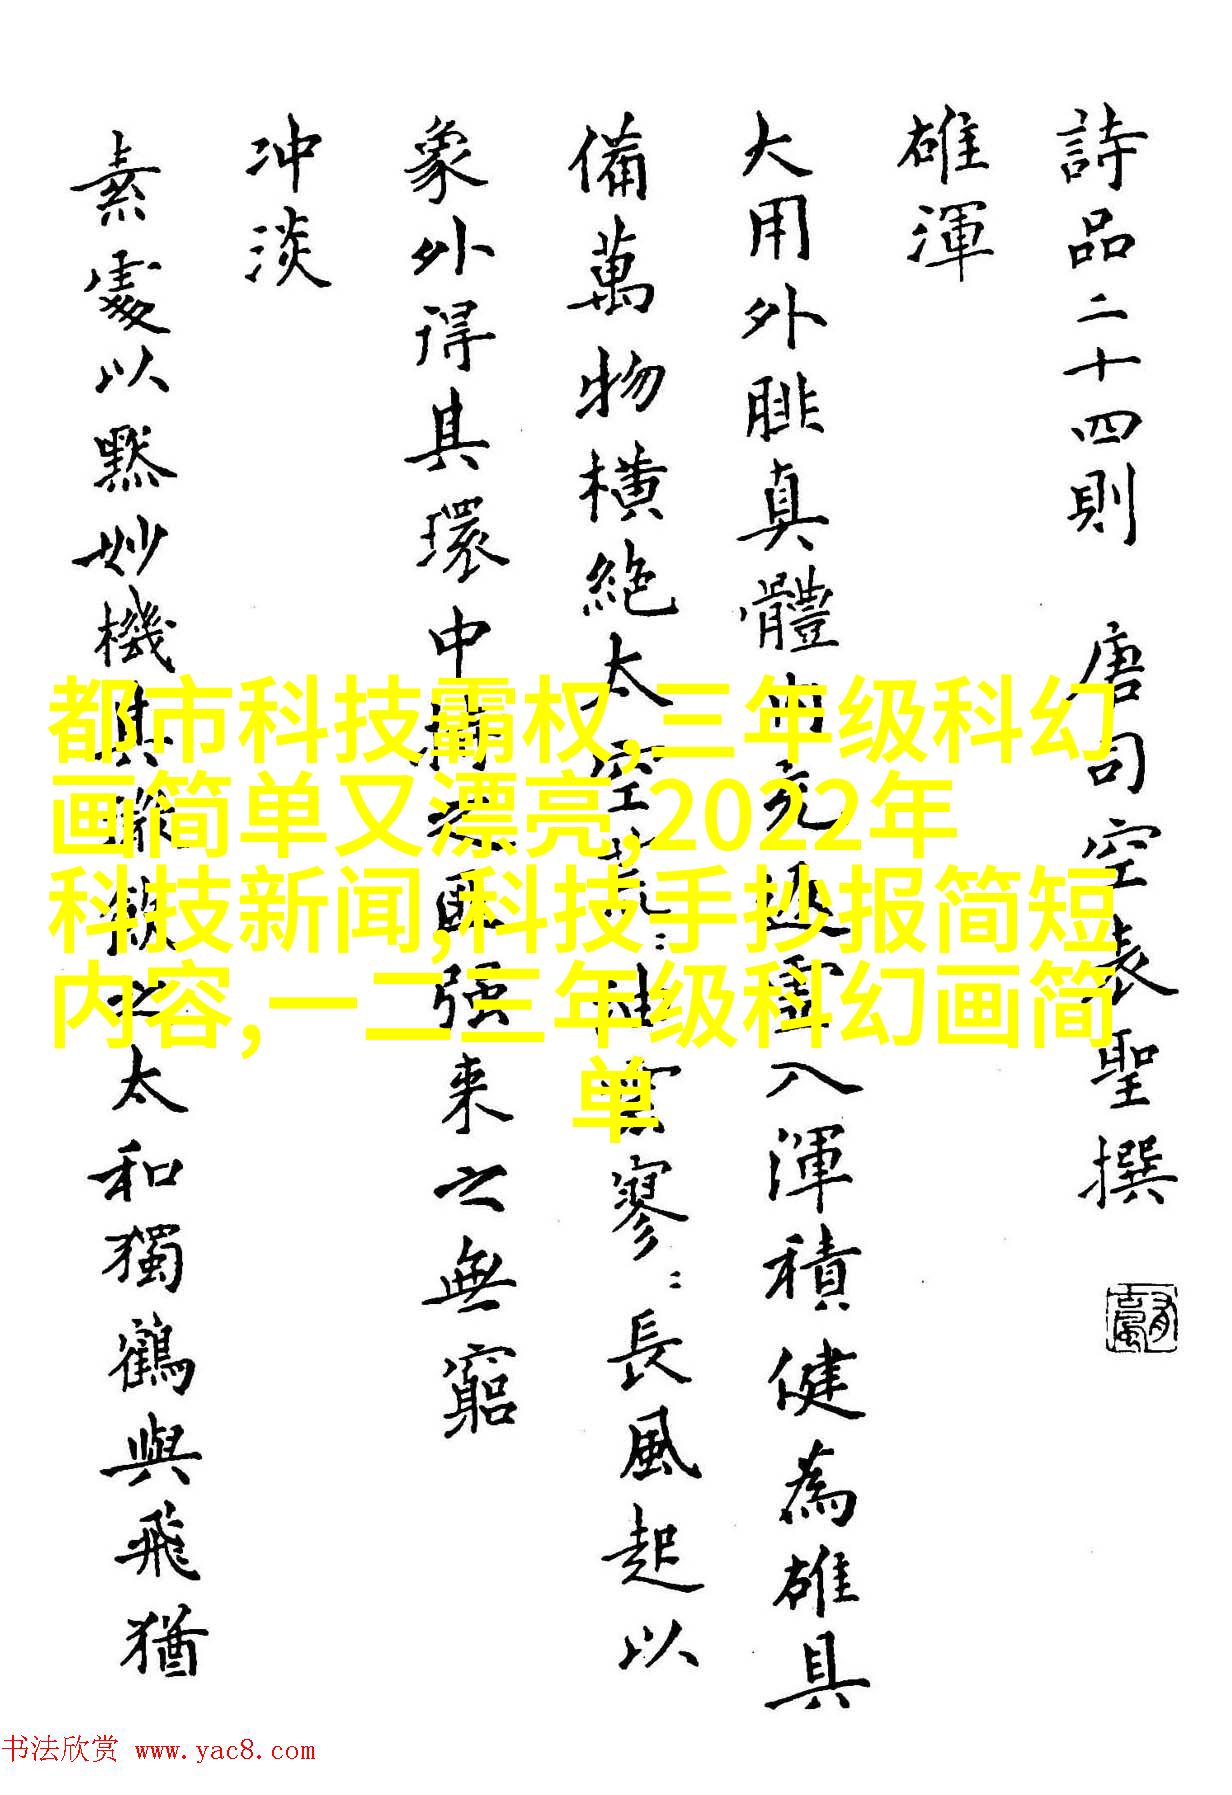 詩品二十四則 唐司空表聖撰
雄渾
大用外腓真體内充返虛入渾積健為雄具
備萬物橫絕太空荒〻油雲寥〻長風起以
象外得其環中持之匪强来之無窮
冲淡
素處以默妙機其微飲之太和獨鶴與飛猶
都市科技霸权,三年级科幻
画简单又漂亮,2022年
科技新闻,科技手抄报简短
内容,一二三年级科幻画简
单
书法欣赏 www.yac8.com